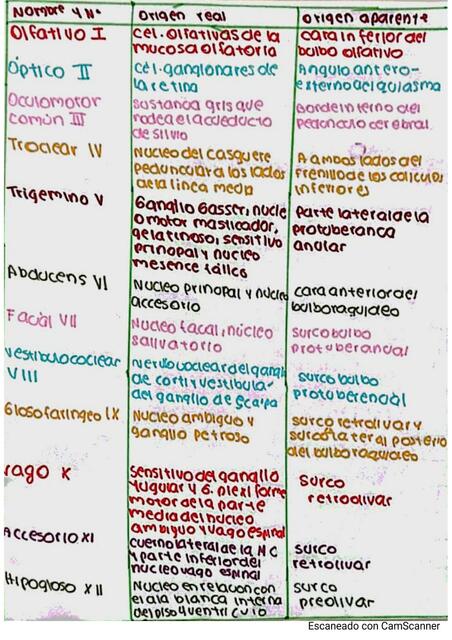 Nombre y Nº
Origen real
origen aparente
Olfativo I
cél. olfativas de la
mucosa olfatoria
cara inferior del
bulbo olfativo
Óptico II
cél. ganglonares de
la retina
Angulo antero-
externo del quiasma
Oculomotor
común III
sustancia gris que
rodea el acueducto
de silvio
Borde interno del
pedunculo cerebral.
Troclear IV
Nucleo del casquete
peduncular a los lados
de la linea media
A ambos lados del
frenillo de los calículos
inferiores
Trigemino V
Ganglio Gasser, núcle
o motor masticador,
gelatinoso, sensitivo
principal y nucleo
mesence fálico
Parte lateral de la
protuberanca
anular
Abducens VI
Nucleo principal y núcleo
accesorio
cara anterior del
bulboraquideo
Facial VII
Nucleo facal, núcleo
salivatorio
surco bulbo
protuberancial
vestibulococlear
VIII
nervio coclear del gangli
de corti y vestibula-
del ganglio de scarpa
surco bulbo
protuberencial
Glosofaringeo IX
Nucleo ambiguo y
ganglio petroso
surco retrolivar y
surco lateral posterio
del bulboraquideo
vago X
sensitivo del ganglio
yugular y G. plexiforme
motor de la parte
media del nucleo
ambiguo y vago espinal
surco
retroolivar
Accesorio XI
cuerno lateral de la MC
y parte inferior del
nucleo vago espinal
surco
retrolivar
Hipogloso XII
Nucleo en relacion con
el ala blanca interna
del piso 4 ventriculo
surco
preolivar
Escaneado con CamScanner